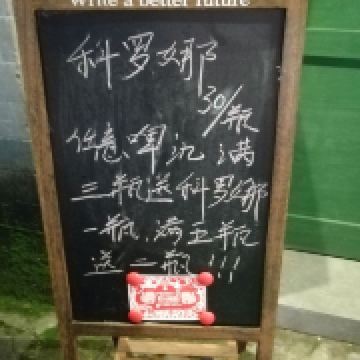 Write a better future
科罗娜
30/瓶
任意啤氿满
三瓶送科罗娜
一瓶.满五瓶
送二瓶!!!